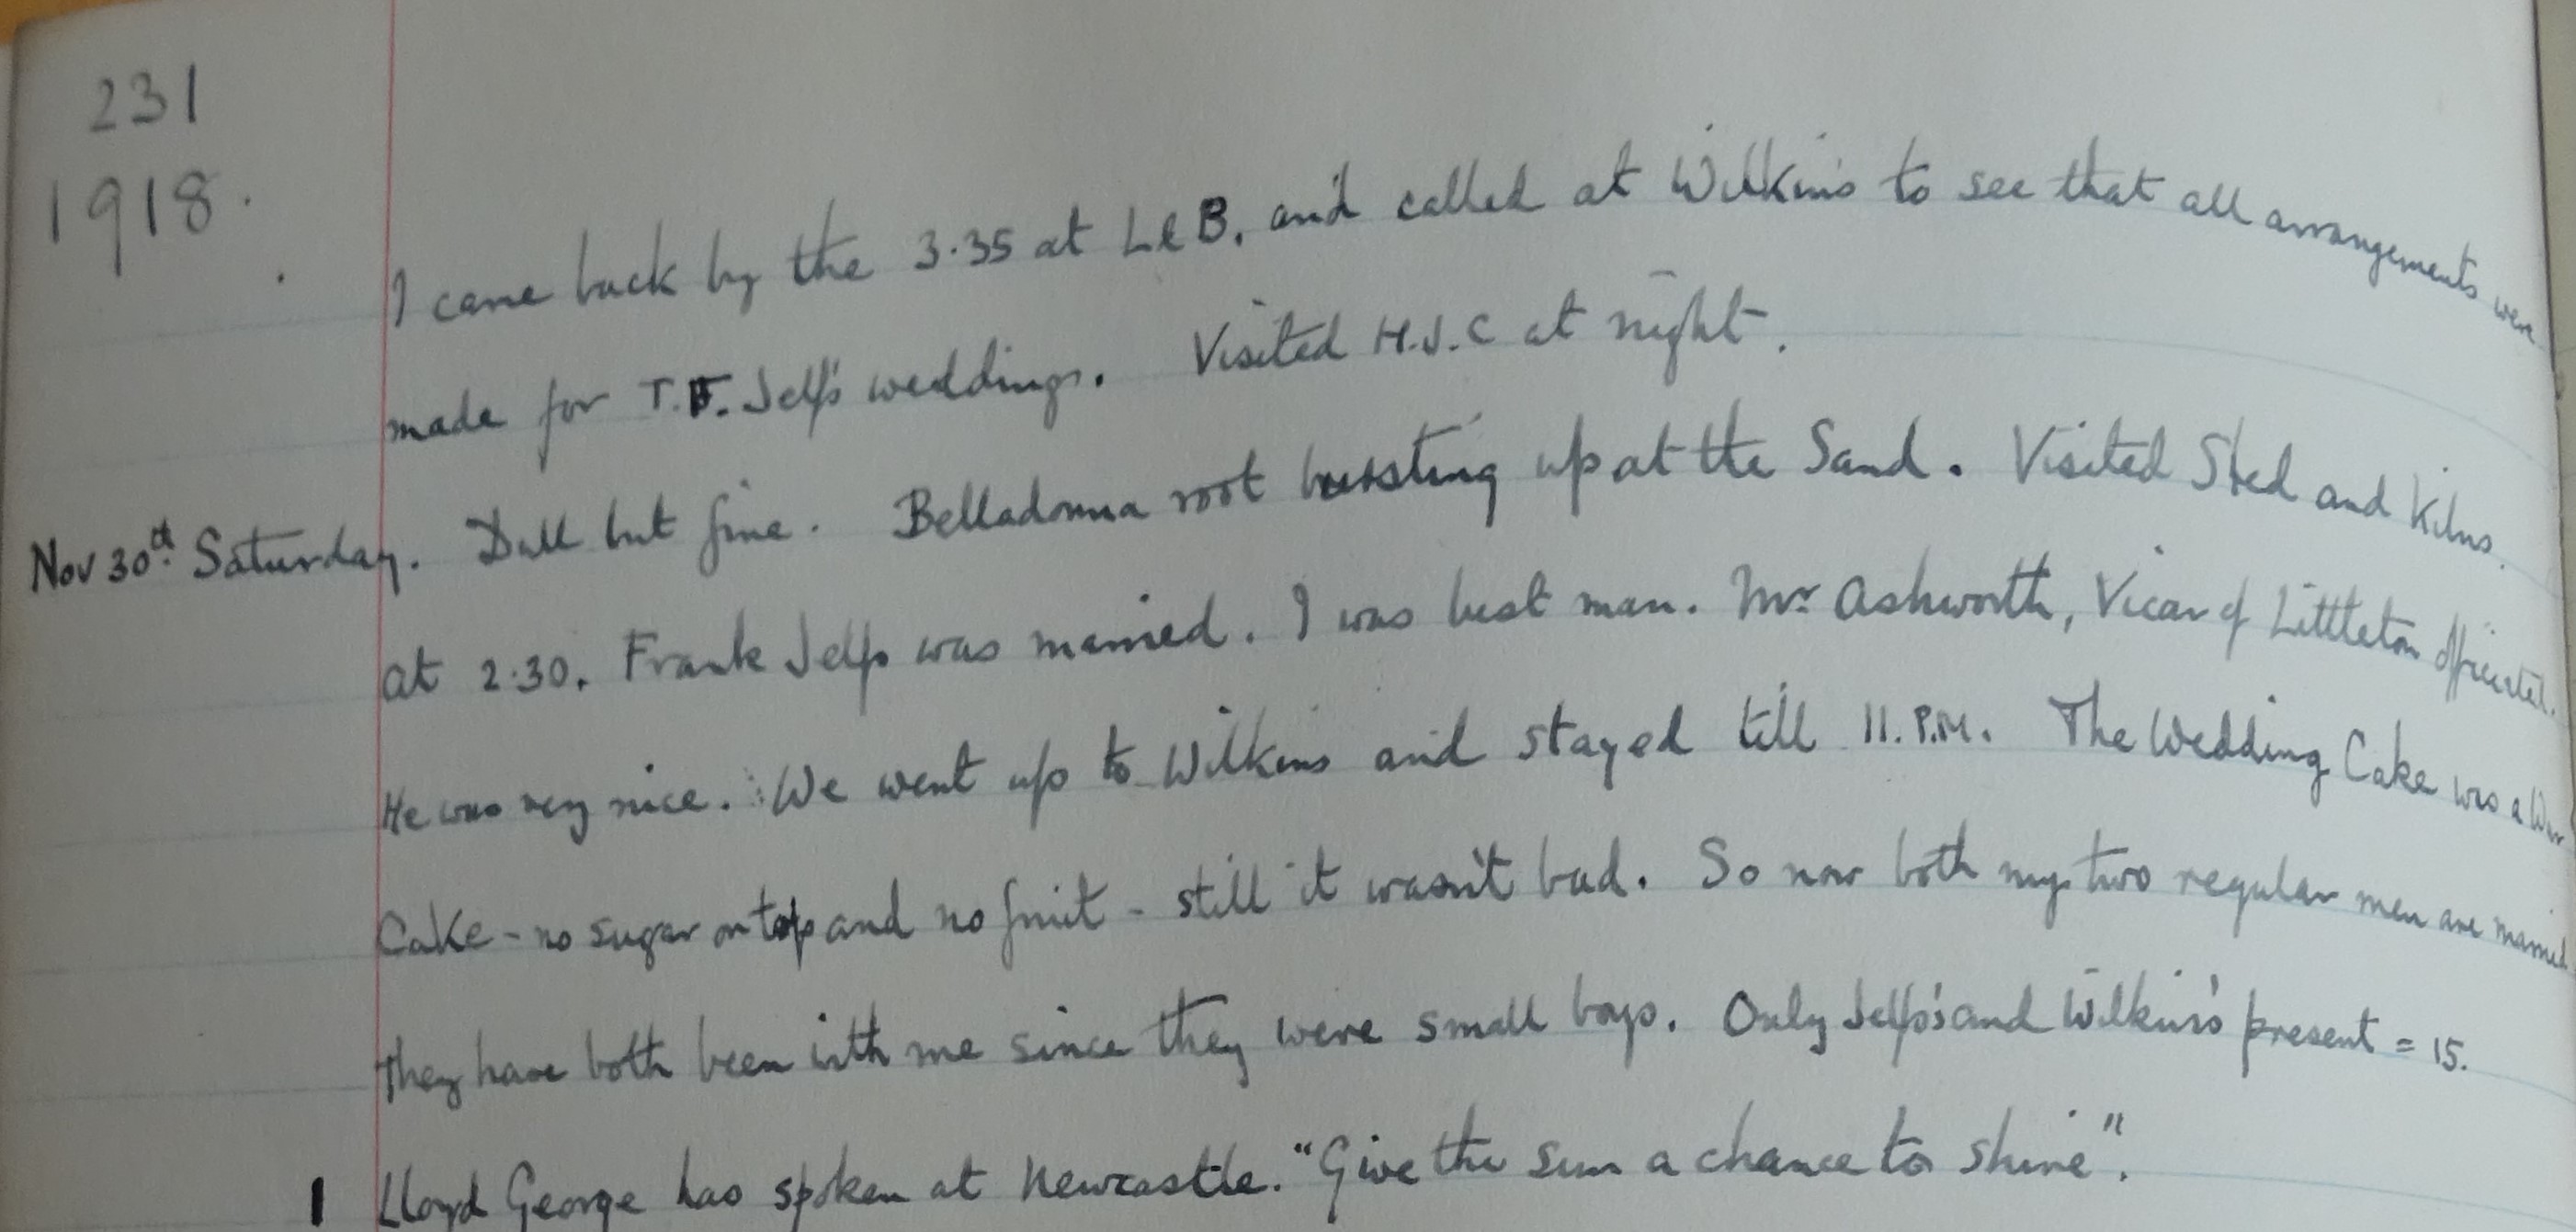 231
1918.
I came back by the 3.35 at L & B. and called at Wilkins to see that all arrangements were
made for T.F. Jelfs weddings. Visited H.J.C at night.
Nov 30th Saturday. Dull but fine. Belladonna root bursting up at the Sand. Visited Shed and Kilns.
at 2.30. Frank Jelfs was married. I was best man. Mr Ashworth, Vicar of Littleton officiated.
He was very nice. We went up to Wilkins and stayed till 11. P.M. The Wedding Cake was a War
Cake - no sugar on top and no fruit - still it wasn't bad. So now both my two regular men are married
They have both been with me since they were small boys. Only Jelfs's and Wilkins's present = 15.
1 Lloyd George has spoken at Newcastle. "Give the sun a chance to shine".